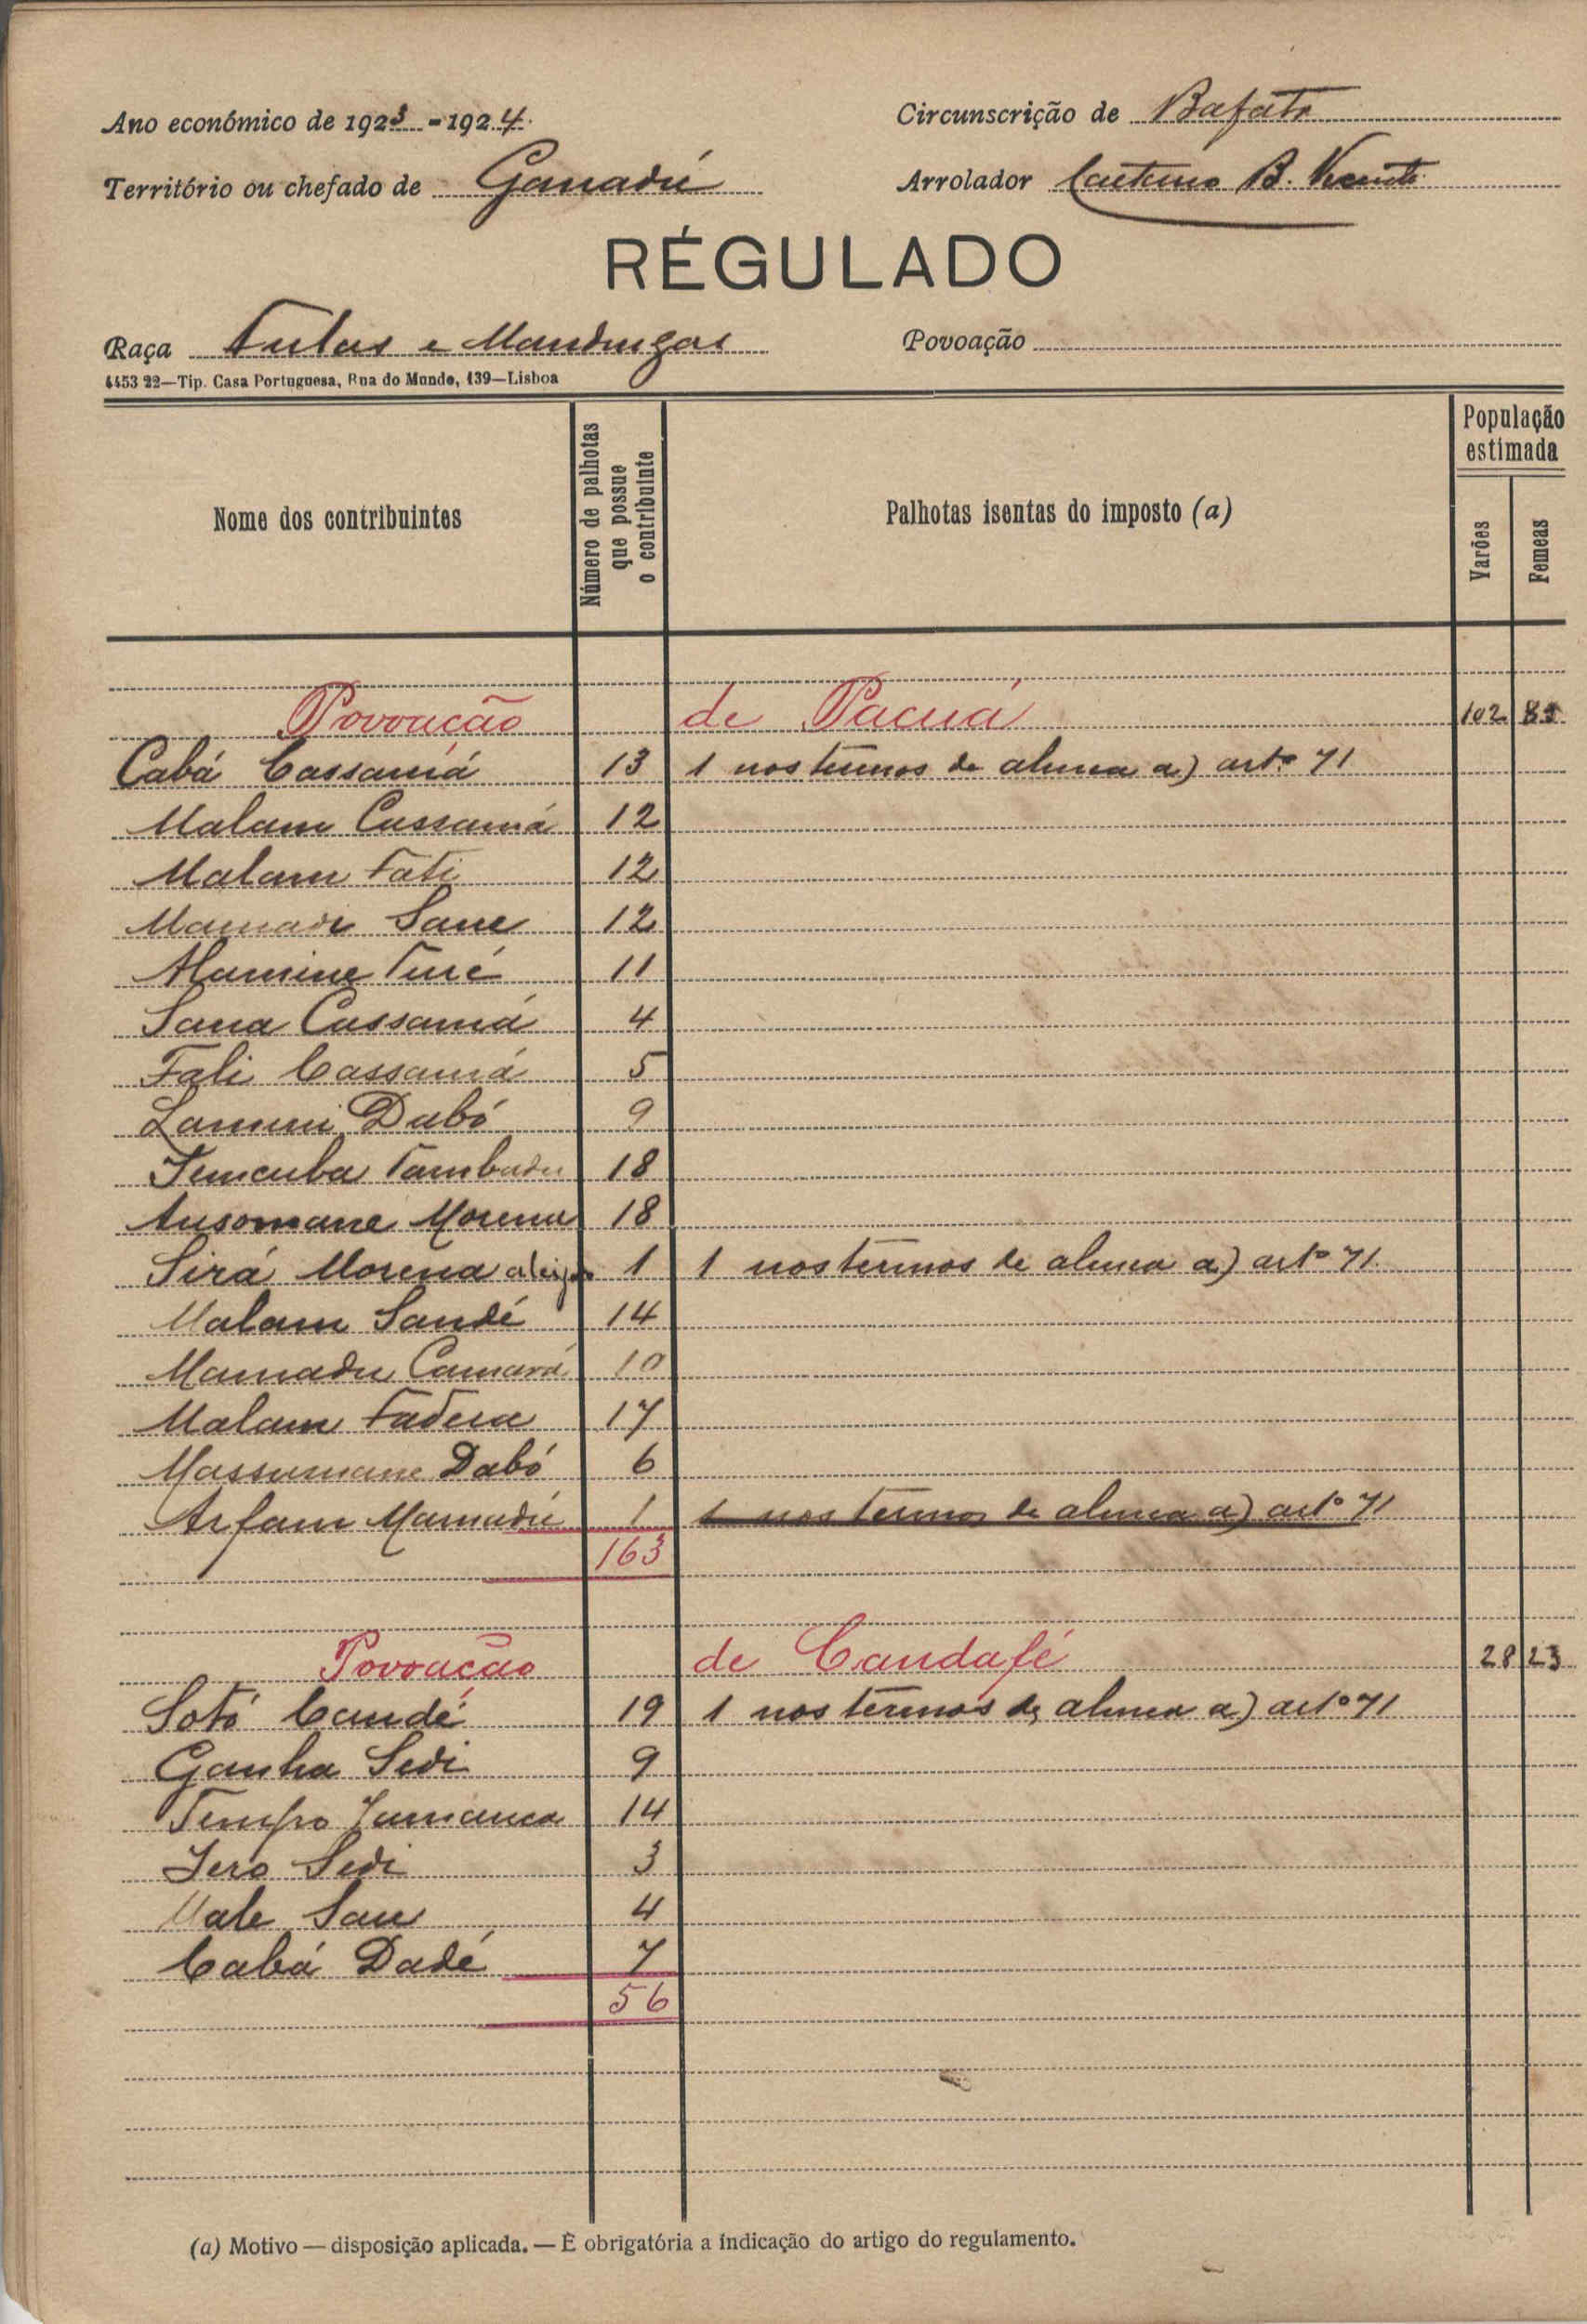 Ano económico de 1923-1924 Circunscrição de Bafatá
Território ou chefado de Ganadú Arrolador Caetano B. Vicente
RÉGULADO
Raça Fulas e Mandingas Povoação
4453 22—Tip. Casa Portuguesa, Rua do Mundo, 139—Lisboa
Nome dos contribuintes Número de palhotas que possue o contribuinte Palhotas isentas do imposto (a) População estimada Varões Femeas
Povoação de Pacuá 102
Cabá Cassamá 13 1 nos termos de alinea a) artº 71
Malam Cassamá 12
Malam Fati 12
Mamadi Sane 12
Alamine Turé 11
Sana Cassamá 4
Fali Cassamá 5
Lamini Dabó 9
Temcuba Tambadu 18
Ansomane Morena 18
Sirá Morena 1 1 nos termos de alinea a) artº 71
Malam Sandé 14
Mamadu Camará 10
Malam Fadera 17
Massumane Dabó 6
Arfam Mamadú 1 1 nos termos de alinea a) artº 71
163
Povoação de Candafé 28 23
Sotó Candé 19 1 nos termos de alinea a) artº 71
Ganha Sedi 9
Tempo Jamanca 14
Jero Sedi 3
Male Sau 4
Cabá Dadé 7
56
(a) Motivo — disposição aplicada. — É obrigatória a índicação do artigo do regulamento.